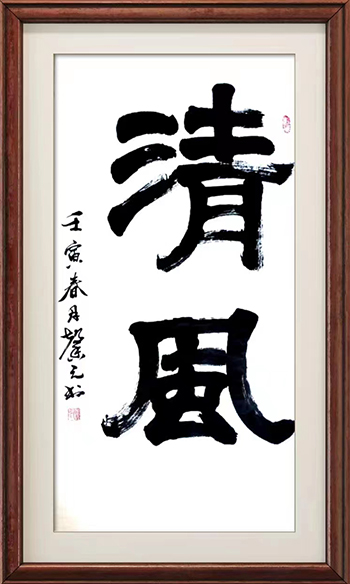 清风
壬寅春月